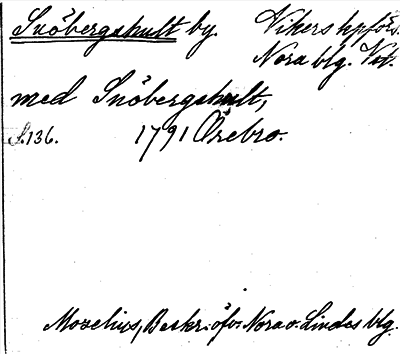 Snöbergshult by. Vikers kpförs.
Nora blg. Vst.
med Snöbergshult,
S.136. 1791 Örebro.
Mozelius, Beskr. öfv. Nora o. Lindes blg.